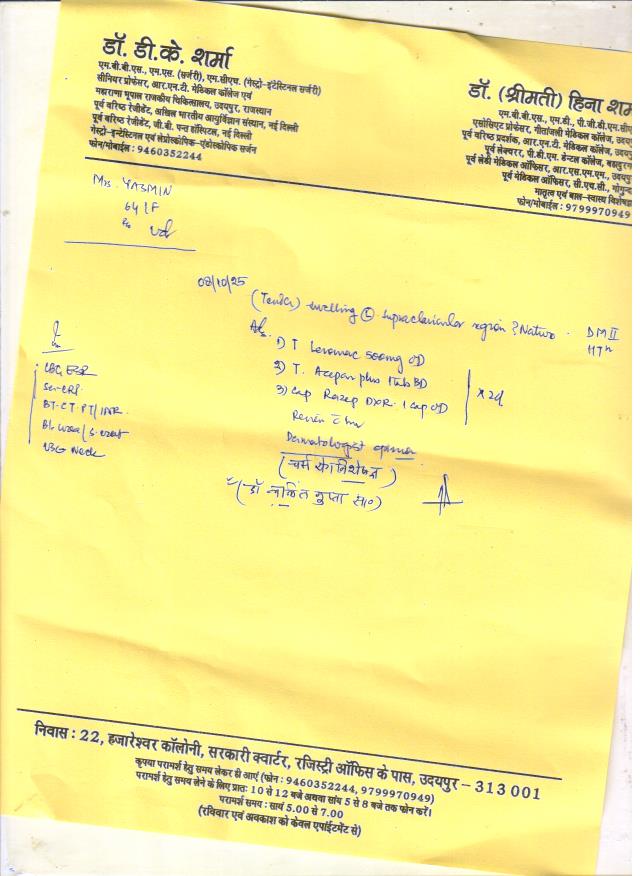 डॉ. डी.के. शर्मा
एम.बी.बी.एस., एम.एस. (सर्जरी), एम.सीएच. (गेस्ट्रो-इंटेस्टिनल सर्जरी)
सीनियर प्रोफेसर, आर.एन.टी. मेडिकल कॉलेज एवं
महाराणा भूपाल राजकीय चिकित्सालय, उदयपुर, राजस्थान
पूर्व वरिष्ठ रेजीडेंट, अखिल भारतीय आयुर्विज्ञान संस्थान, नई दिल्ली
पूर्व वरिष्ठ रेजीडेंट, जी.बी. पन्त हॉस्पिटल, नई दिल्ली
गेस्ट्रो-इन्टेस्टिनल एवं लेप्रोस्कोपिक-एंडोस्कोपिक सर्जन
फोन/मोबाईल : 9460352244
डॉ. (श्रीमती) हिना शर्मा
एम.बी.बी.एस., एम.डी., पी.जी.डी.एम.सी
एसोसिएट प्रोफेसर, गीतांजली मेडिकल कॉलेज, उदय
पूर्व वरिष्ठ प्रदर्शक, आर.एन.टी. मेडिकल कॉलेज, उदय
पूर्व लेक्चरर, पी.डी.एम. डेन्टल कॉलेज, बहादुरग
पूर्व लेडी मेडिकल ऑफिसर, आर.एस.एम.एम., उदय
पूर्व मेडिकल ऑफिसर, सी.एच.सी., गोगुन्द
मातृत्व एवं बाल-स्वास्थ्य विशेषज्ञ
फोन/मोबाईल : 9799970949
Mrs. YASMIN
64 / F
08/10/25
(Tender) swelling (L) supraclavicular region ? Nature . DM II
HTn
Adv.
1) T 500mg OD
2) T. plus 1 tab BD
3) Cap DXR 1 cap OD
Dermatologist opinion
(चर्म रोग विशेषज्ञ)
(डॉ गुप्ता सा०)
CBC, ESR
Se. CRP
BT-CT-PT/INR
Bl. urea / S. creat
USG Neck
निवास : 22, हजारेश्वर कॉलोनी, सरकारी क्वार्टर, रजिस्ट्री ऑफिस के पास, उदयपुर - 313 001
कृपया परामर्श हेतु समय लेकर ही आएं (फोन : 9460352244, 9799970949)
परामर्श हेतु समय लेने के लिए प्रातः 10 से 12 बजे अथवा सांय 5 से 8 बजे तक फोन करें।
परामर्श समय : सायं 5.00 से 7.00
(रविवार एवं अवकाश को केवल एपॉईंटमेंट से)